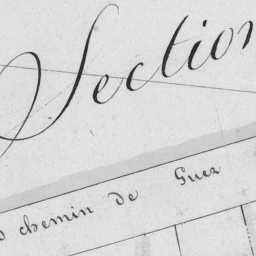 Section
chemin de Guex